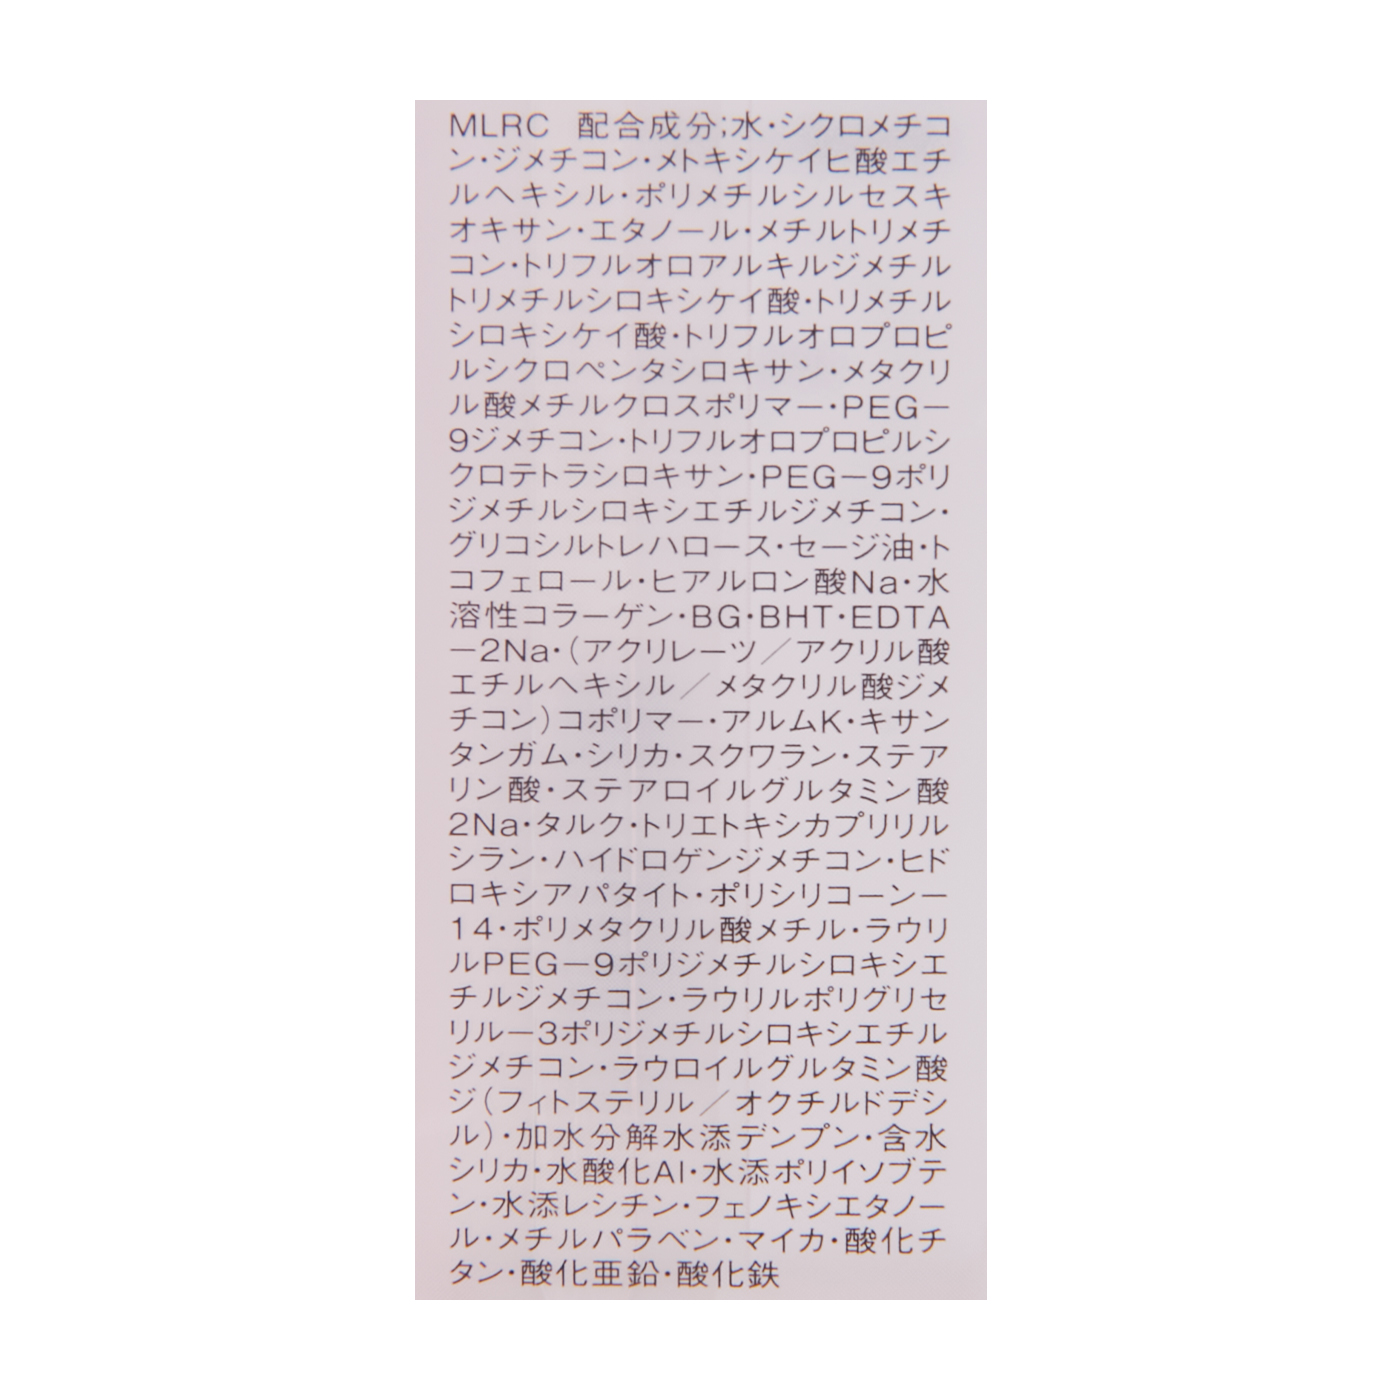 MLRC 配合成分;水・シクロメチコ
ン・ジメチコン・メトキシケイヒ酸エチ
ルヘキシル・ポリメチルシルセスキ
オキサン・エタノール・メチルトリメチ
コン・トリフルオロアルキルジメチル
トリメチルシロキシケイ酸・トリメチル
シロキシケイ酸・トリフルオロプロピ
ルシクロペンタシロキサン・メタクリ
ル酸メチルクロスポリマー・PEG－
9ジメチコン・トリフルオロプロピルシ
クロテトラシロキサン・PEG－9ポリ
ジメチルシロキシエチルジメチコン・
グリコシルトレハロース・セージ油・ト
コフェロール・ヒアルロン酸Na・水
溶性コラーゲン・BG・BHT・EDTA
－2Na・(アクリレーツ／アクリル酸
エチルヘキシル／メタクリル酸ジメ
チコン)コポリマー・アルムK・キサン
タンガム・シリカ・スクワラン・ステア
リン酸・ステアロイルグルタミン酸
2Na・タルク・トリエトキシカプリリル
シラン・ハイドロゲンジメチコン・ヒド
ロキシアパタイト・ポリシリコーン－
14・ポリメタクリル酸メチル・ラウリ
ルPEG－9ポリジメチルシロキシエ
チルジメチコン・ラウリルポリグリセ
リル－3ポリジメチルシロキシエチル
ジメチコン・ラウロイルグルタミン酸
ジ(フィトステリル／オクチルドデシ
ル)・加水分解水添デンプン・含水
シリカ・水酸化Al・水添ポリイソブテ
ン・水添レシチン・フェノキシエタノー
ル・メチルパラベン・マイカ・酸化チ
タン・酸化亜鉛・酸化鉄